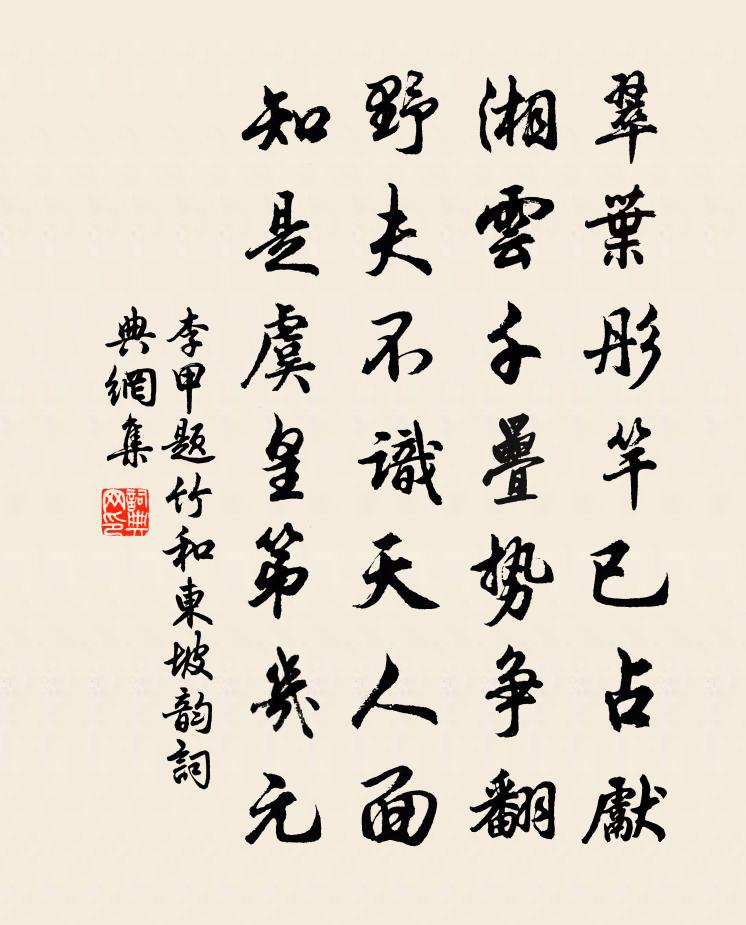 翠葉彤竿已占獻
湘雲千疊勢争翻
野夫不識天人面
知是虞皇第幾元
李甲题竹和東坡韵詞
典網集
詞典网印